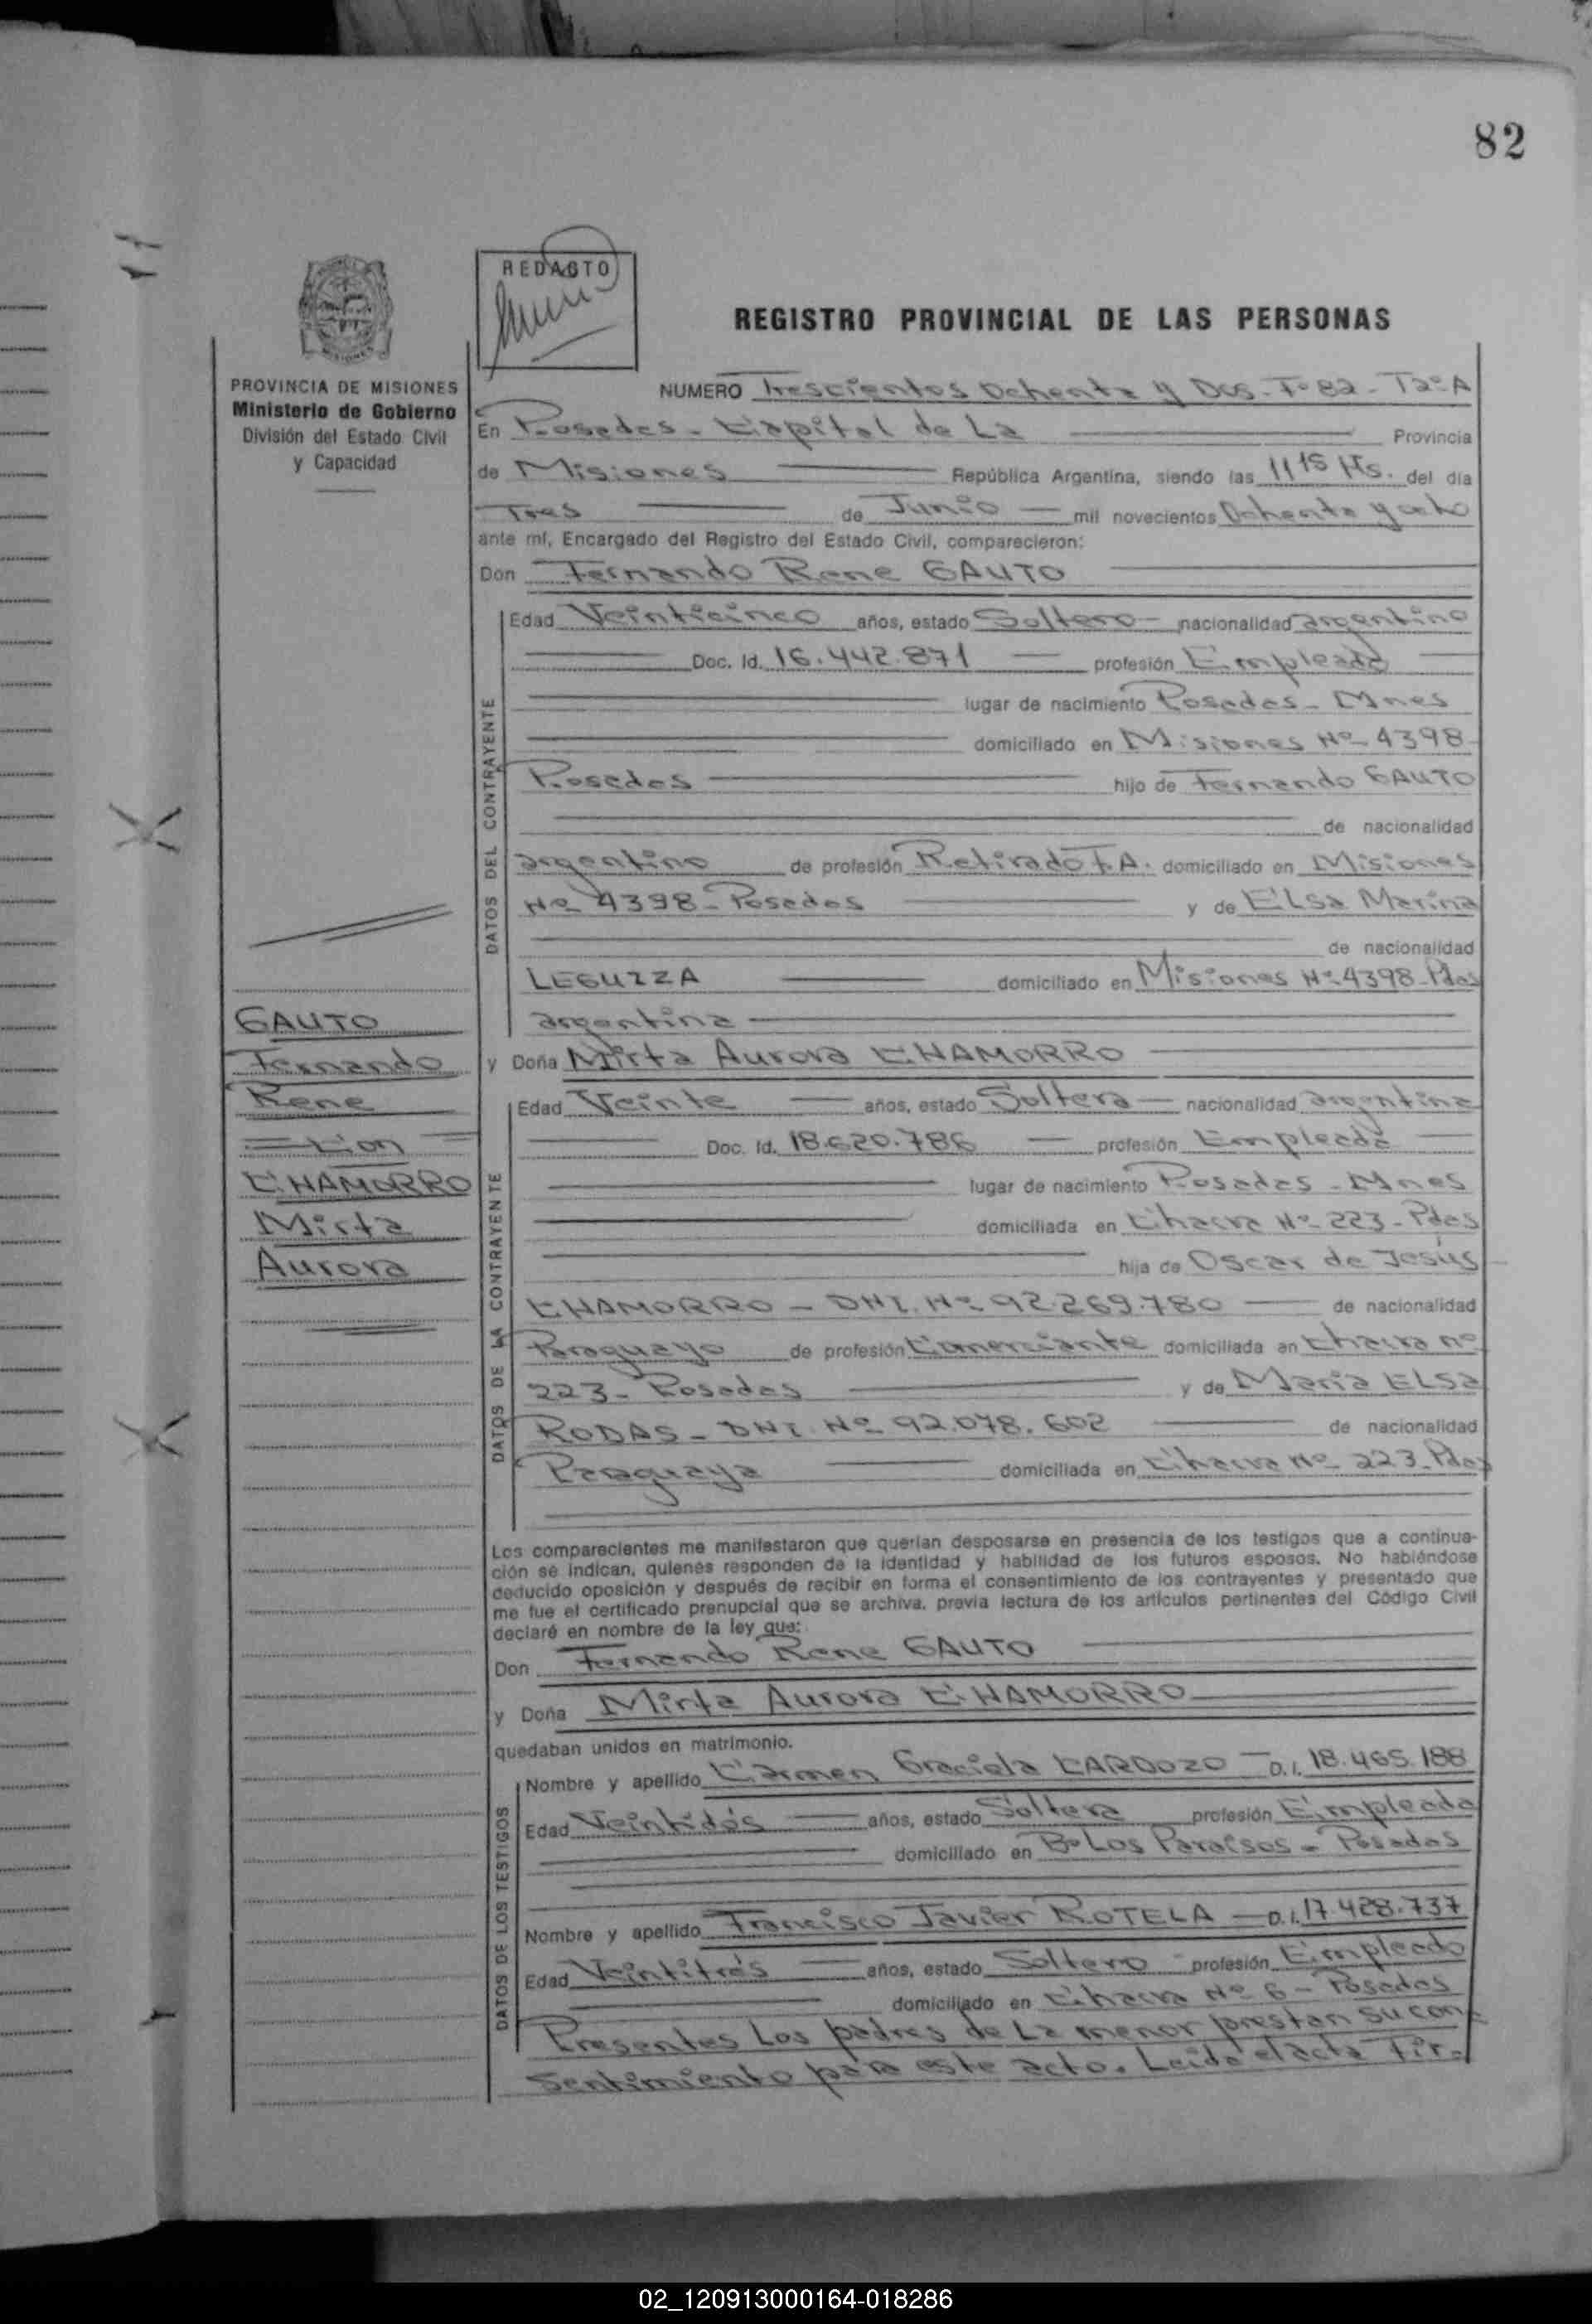 82
REDACTO
REGISTRO PROVINCIAL DE LAS PERSONAS
PROVINCIA DE MISIONES
Ministerio de Gobierno
División del Estado Civil
y Capacidad
NUMERO Trescientos Ochenta y Dos - Fº 82 - Tº 2º A
En Posadas - Capital de La Provincia
de Misiones República Argentina, siendo las 11 15 Hs. del día
Tres de Junio mil novecientos Ochenta y ocho
ante mí, Encargado del Registro del Estado Civil, comparecieron:
Don Fernando Rene GAUTO
DATOS DEL CONTRAYENTE
Edad Veinticinco años, estado Soltero nacionalidad argentino
Doc. Id. 16.442.871 profesión Empleado
lugar de nacimiento Posadas - Mnes
domiciliado en Misiones Nº 4398
Posadas hijo de Fernando GAUTO
de nacionalidad
argentino de profesión Retirado F.A. domiciliado en Misiones
Nº 4398 - Posadas y de Elsa Marina
de nacionalidad
LEGUIZA domiciliado en Misiones Nº 4398 - Pdas
argentina
GAUTO
Fernando
Rene
= Con =
CHAMORRO
Mirta
Aurora
y Doña Mirta Aurora CHAMORRO
DATOS DE LA CONTRAYENTE
Edad Veinte años, estado Soltera nacionalidad argentina
Doc. Id. 18.620.786 profesión Empleada
lugar de nacimiento Posadas - Mnes
domiciliada en Chacra Nº 223 - Pdas
hija de Oscar de Jesús
CHAMORRO - DNI. Nº 92.269.780 de nacionalidad
Paraguayo de profesión Comerciante domiciliada en Chacra nº
223 - Posadas y de María Elsa
RODAS - DNI. Nº 92.078.602 de nacionalidad
Paraguaya domiciliada en Chacra Nº 223 - Pdas
Los comparecientes me manifestaron que querían desposarse en presencia de los testigos que a continua-
ción se indican, quienes responden de la identidad y habilidad de los futuros esposos. No habiéndose
deducido oposición y después de recibir en forma el consentimiento de los contrayentes y presentado que
me fue el certificado prenupcial que se archiva, previa lectura de los artículos pertinentes del Código Civil
declaré en nombre de la ley que:
Don Fernando Rene GAUTO
y Doña Mirta Aurora CHAMORRO
quedaban unidos en matrimonio.
DATOS DE LOS TESTIGOS
Nombre y apellido Carmen Graciela CARDOZO - D.I. 18.465.188
Edad Veintidós años, estado Soltera profesión Empleada
domiciliado en Bº Los Paraísos - Posadas
Nombre y apellido Francisco Javier ROTELA - D.I. 17.428.737
Edad Veintitrés años, estado Soltero profesión Empleado
domiciliado en Chacra Nº 6 - Posadas
Presentes Los padres de La menor prestan su con-
sentimiento para este acto. Leída el acta fir-
02_120913000164-018286